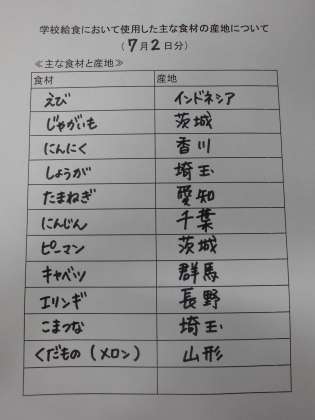 学校給食において使用した主な食材の産地について
(7月2日分)
≪主な食材と産地≫
食材 産地
えび インドネシア
じゃがいも 茨城
にんにく 香川
しょうが 埼玉
たまねぎ 愛知
にんじん 千葉
ピーマン 茨城
キャベツ 群馬
エリンギ 長野
こまつな 埼玉
くだもの(メロン) 山形